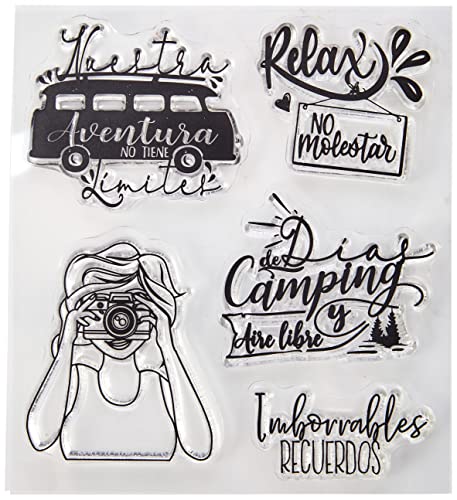 Nuestra
Aventura
NO TIENE
Límites
Relax
NO
Molestar
Días
de
Camping
y
Aire libre
Imborrables
RECUERDOS